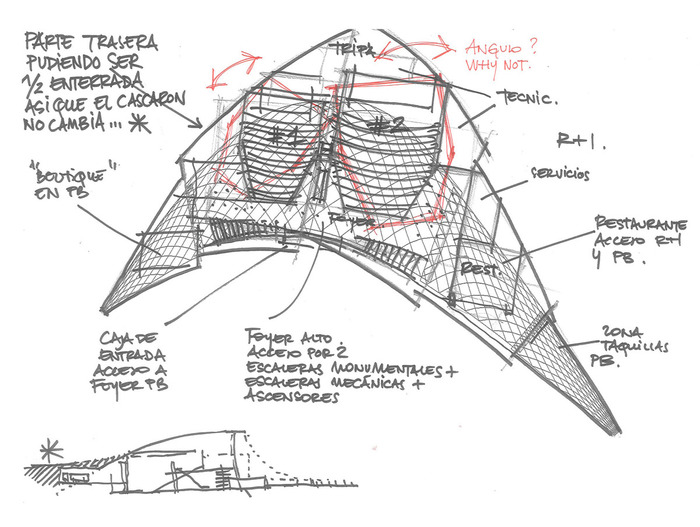 PARTE TRASERA
PUDIENDO SER
1/2 ENTERRADA
ASI QUE EL CASCARON
NO CAMBIA... *
TRIPA
ANGULO?
WHY NOT.
TECNIC.
R+1.
SERVICIOS
#1
#2
"BOUTIQUE"
EN PB
FOYER
REST.
RESTAURANTE
ACCESO R+1
Y PB.
ZONA
TAQUILLAS
PB.
CAJA DE
ENTRADA
ACCESO A
FOYER PB
FOYER ALTO.
ACCESO POR 2
ESCALERAS MONUMENTALES +
ESCALERAS MECÁNICAS +
ASCENSORES
*